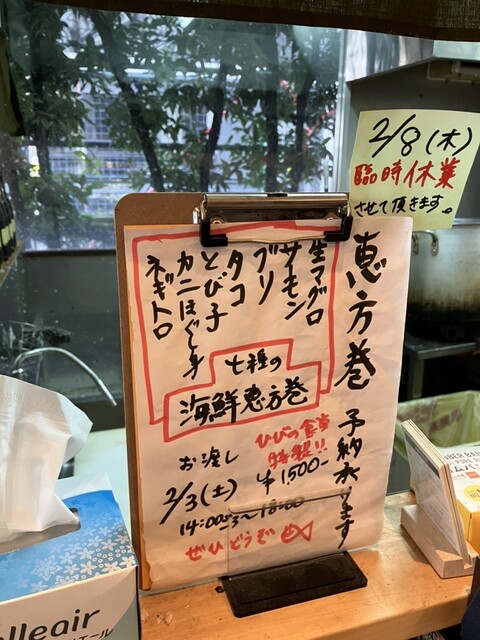 2/8(木)
臨時休業
させて頂きます。
恵方巻 予約承ります
生マグロ
サーモン
ブリ
タコ
とび子
カニほぐし身
ネギトロ
七種の
海鮮恵方巻
ひびの食堂
特製!!
¥1,500-
お渡し
2/3(土)
14:00~18:00
ぜひどうぞ
elleair
エール